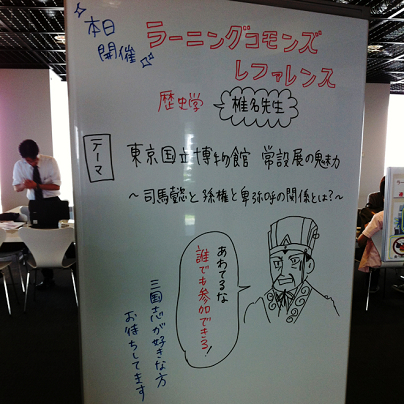 本日
開催
ラーニングコモンズ
レファレンス
歴史学
椎名先生
テーマ
東京国立博物館 常設展の魅力
～司馬懿と孫権と卑弥呼の関係とは?～
あわてるな
誰でも参加できる!
三国志が好きな方
お待ちしてます